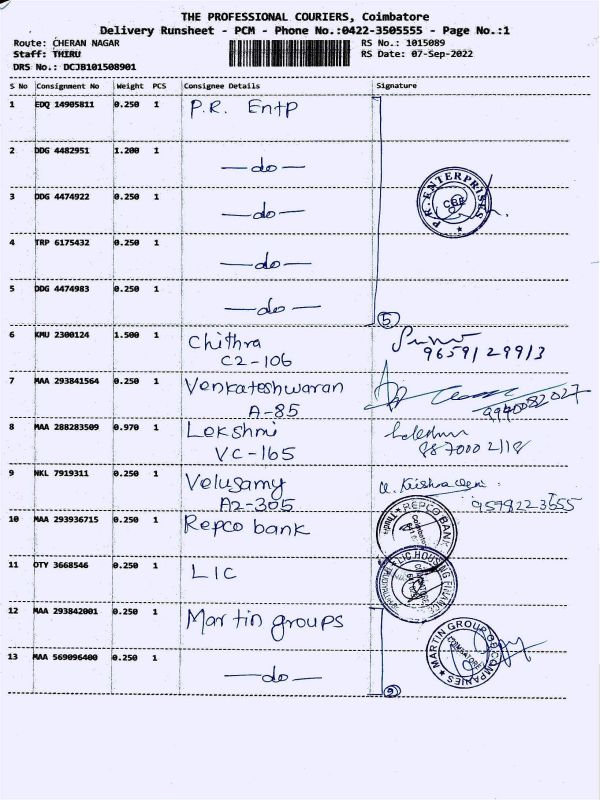 THE PROFESSIONAL COURIERS, Coimbatore
Delivery Runsheet - PCM - Phone No.:0422-3505555 - Page No.:1
Route: CHERAN NAGAR
RS No.: 1015089
Staff: THIRU
RS Date: 07-Sep-2022
DRS No.: DCJB101508901
S No Consignment No Weight PCS Consignee Details Signature
1 EDQ 14905811 0.250 1 P.R. Entp
2 DDG 4482951 1.200 1 —do—
3 DDG 4474922 0.250 1 —do—
P.R. ENTERPRISES
CBE
4 TRP 6175432 0.250 1 —do—
5 DDG 4474983 0.250 1 —do—
5
6 KMU 2300124 1.500 1 Chithra
C2-106
9659129913
7 MAA 293841564 0.250 1 Venkateshwaran
A-85
9940082027
8 MAA 288283509 0.970 1 Lekshmi
VC-165
9870002118
9 NKL 7919311 0.250 1 Velusamy
A2-305
9598223655
10 MAA 293936715 0.250 1 Repco bank
REPCO BANK
11 OTY 3668546 0.250 1 LIC
LIC HOUSING FINANCE
12 MAA 293842001 0.250 1 Martin groups
MARTIN GROUP OF COMPANIES
COIMBATORE
13 MAA 569096400 0.250 1 —do—